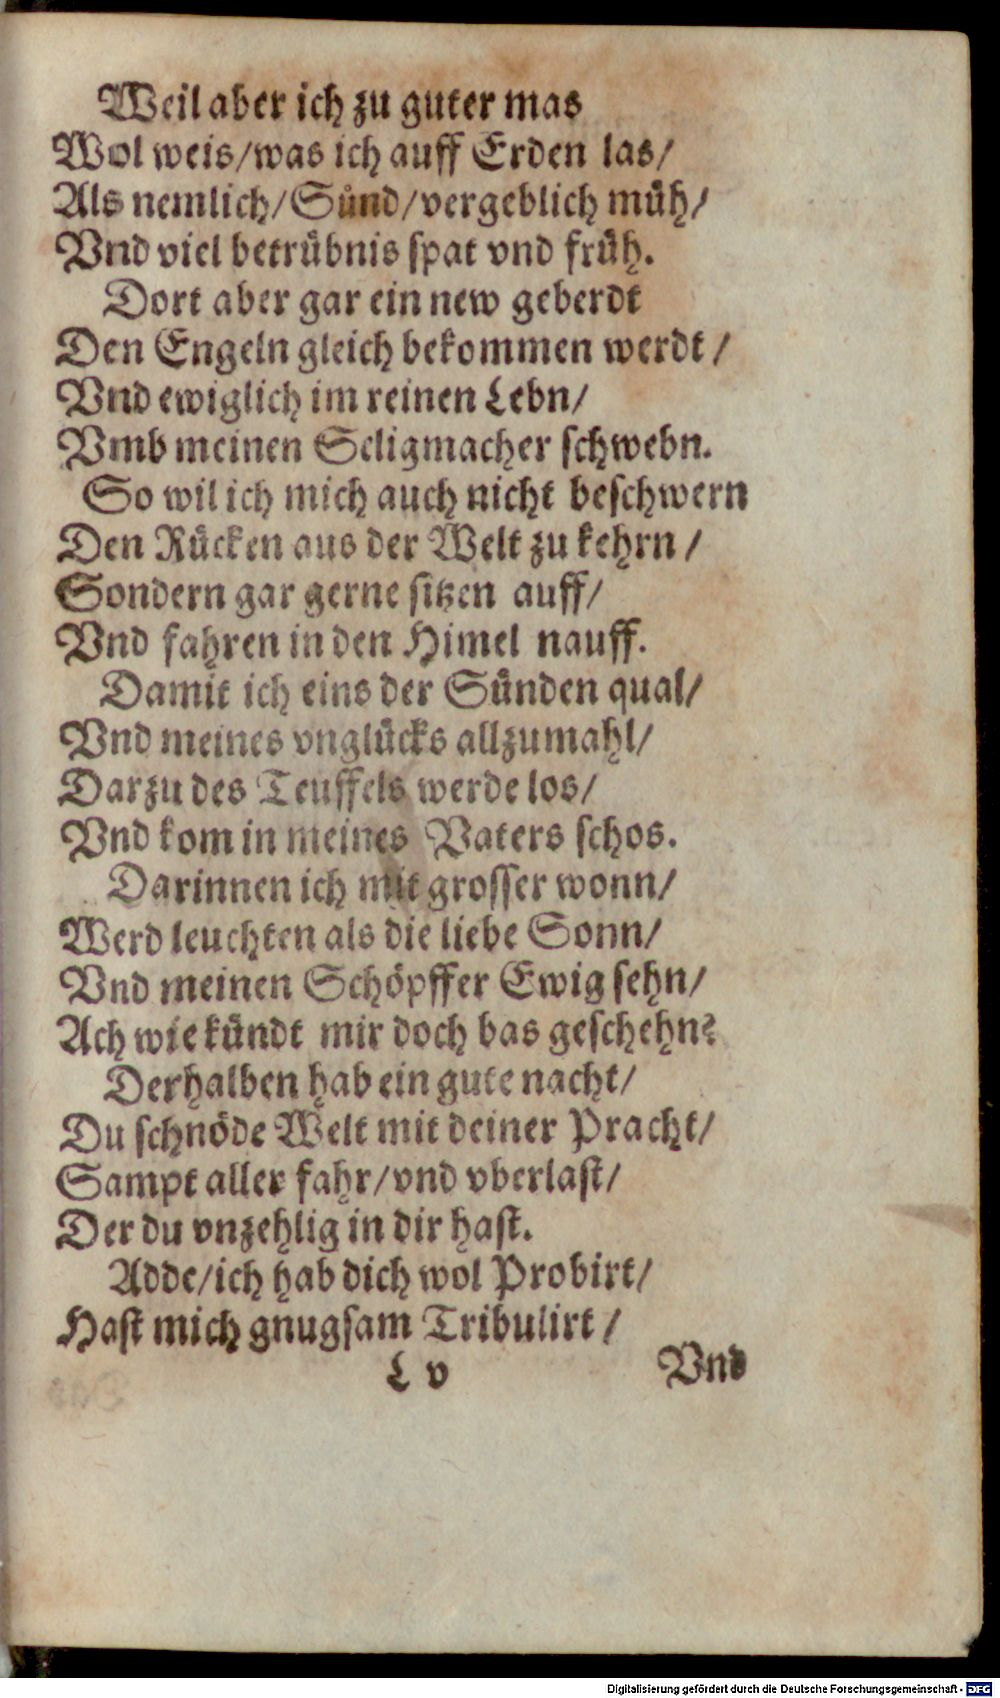 Weil aber ich zu guter mas
Wol weis/was ich auff Erden las/
Als nemlich/Sünd/vergeblich müh/
Vnd viel betrübnis spat vnd früh.
Dort aber gar ein new geberdt
Den Engeln gleich bekommen werdt/
Vnd ewiglich im reinen Lebn/
Vmb meinen Seligmacher schwebn.
So wil ich mich auch nicht beschwern
Den Rücken aus der Welt zu kehrn/
Sondern gar gerne sitzen auff/
Vnd fahren in den Himel nauff.
Damit ich eins der Sünden qual/
Vnd meines vnglücks allzumahl/
Darzu des Teuffels werde los/
Vnd kom in meines Vaters schos.
Darinnen ich mit grosser wonn/
Werd leuchten als die liebe Sonn/
Vnd meinen Schöpffer Ewig sehn/
Ach wie kündt mir doch bas geschehn?
Derhalben hab ein gute nacht/
Du schnöde Welt mit deiner Pracht/
Sampt aller fahr/vnd vberlast/
Der du vnzehlig in dir hast.
Adde/ich hab dich wol Probirt/
Hast mich gnugsam Tribulirt/
L v Vnd
Digitalisierung gefördert durch die Deutsche Forschungsgemeinschaft - DFG